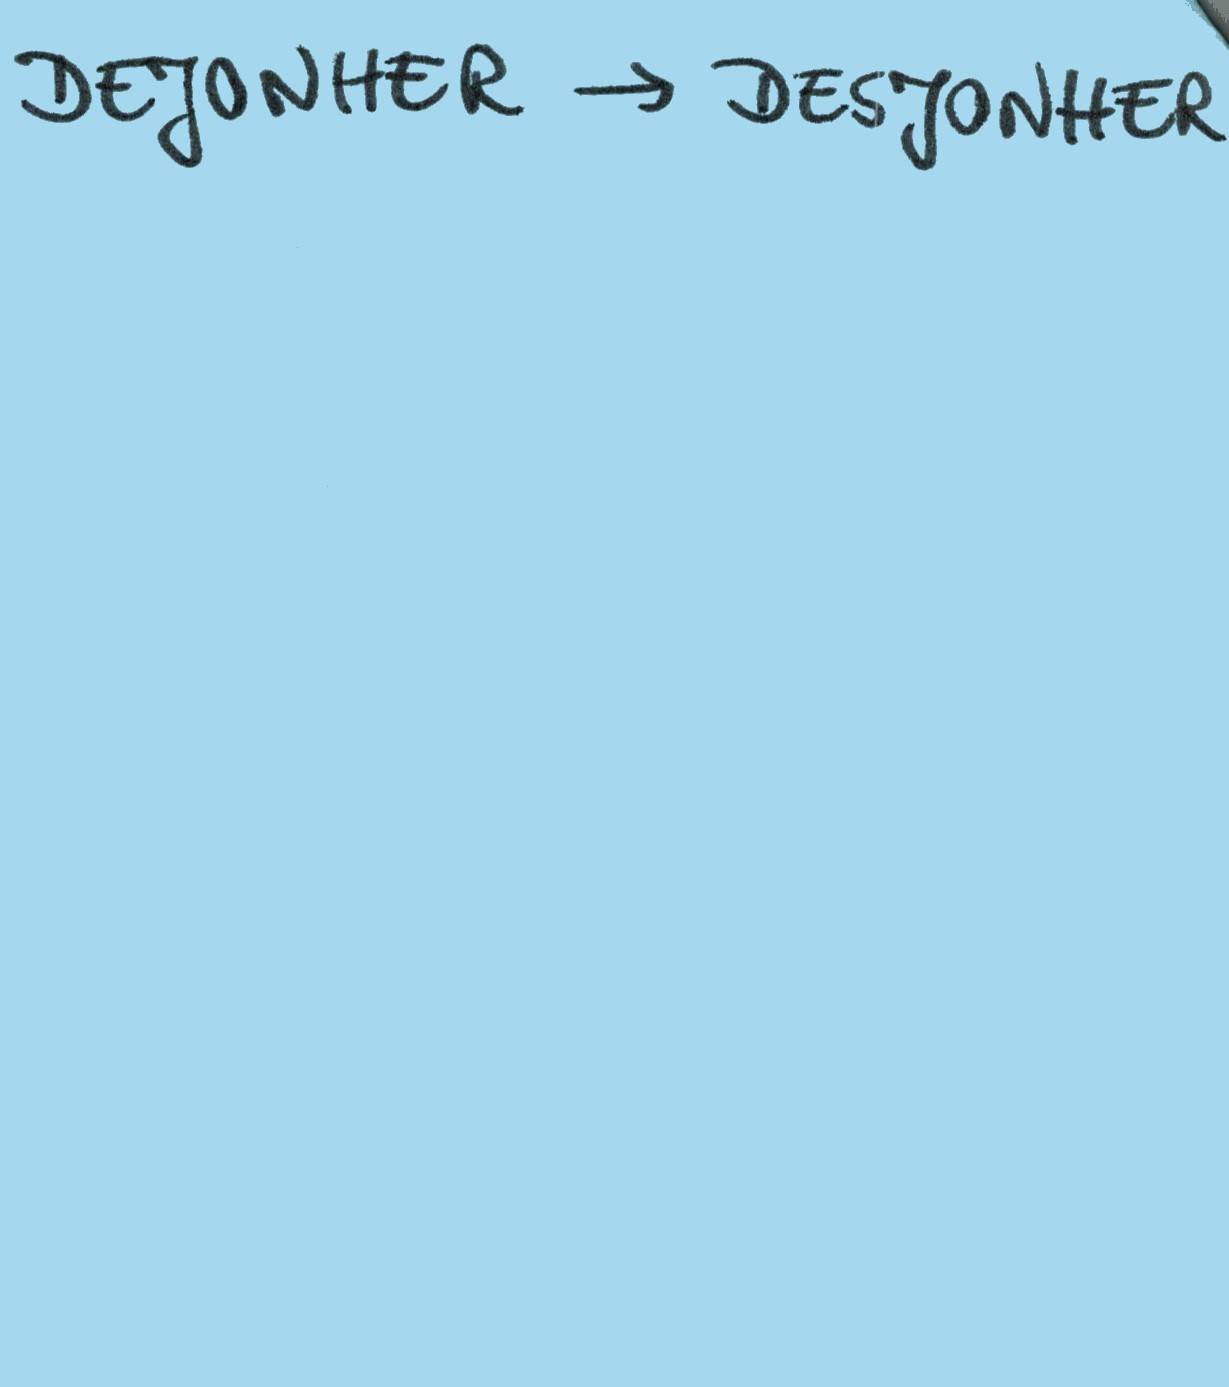 DEJONHER → DESJONHER